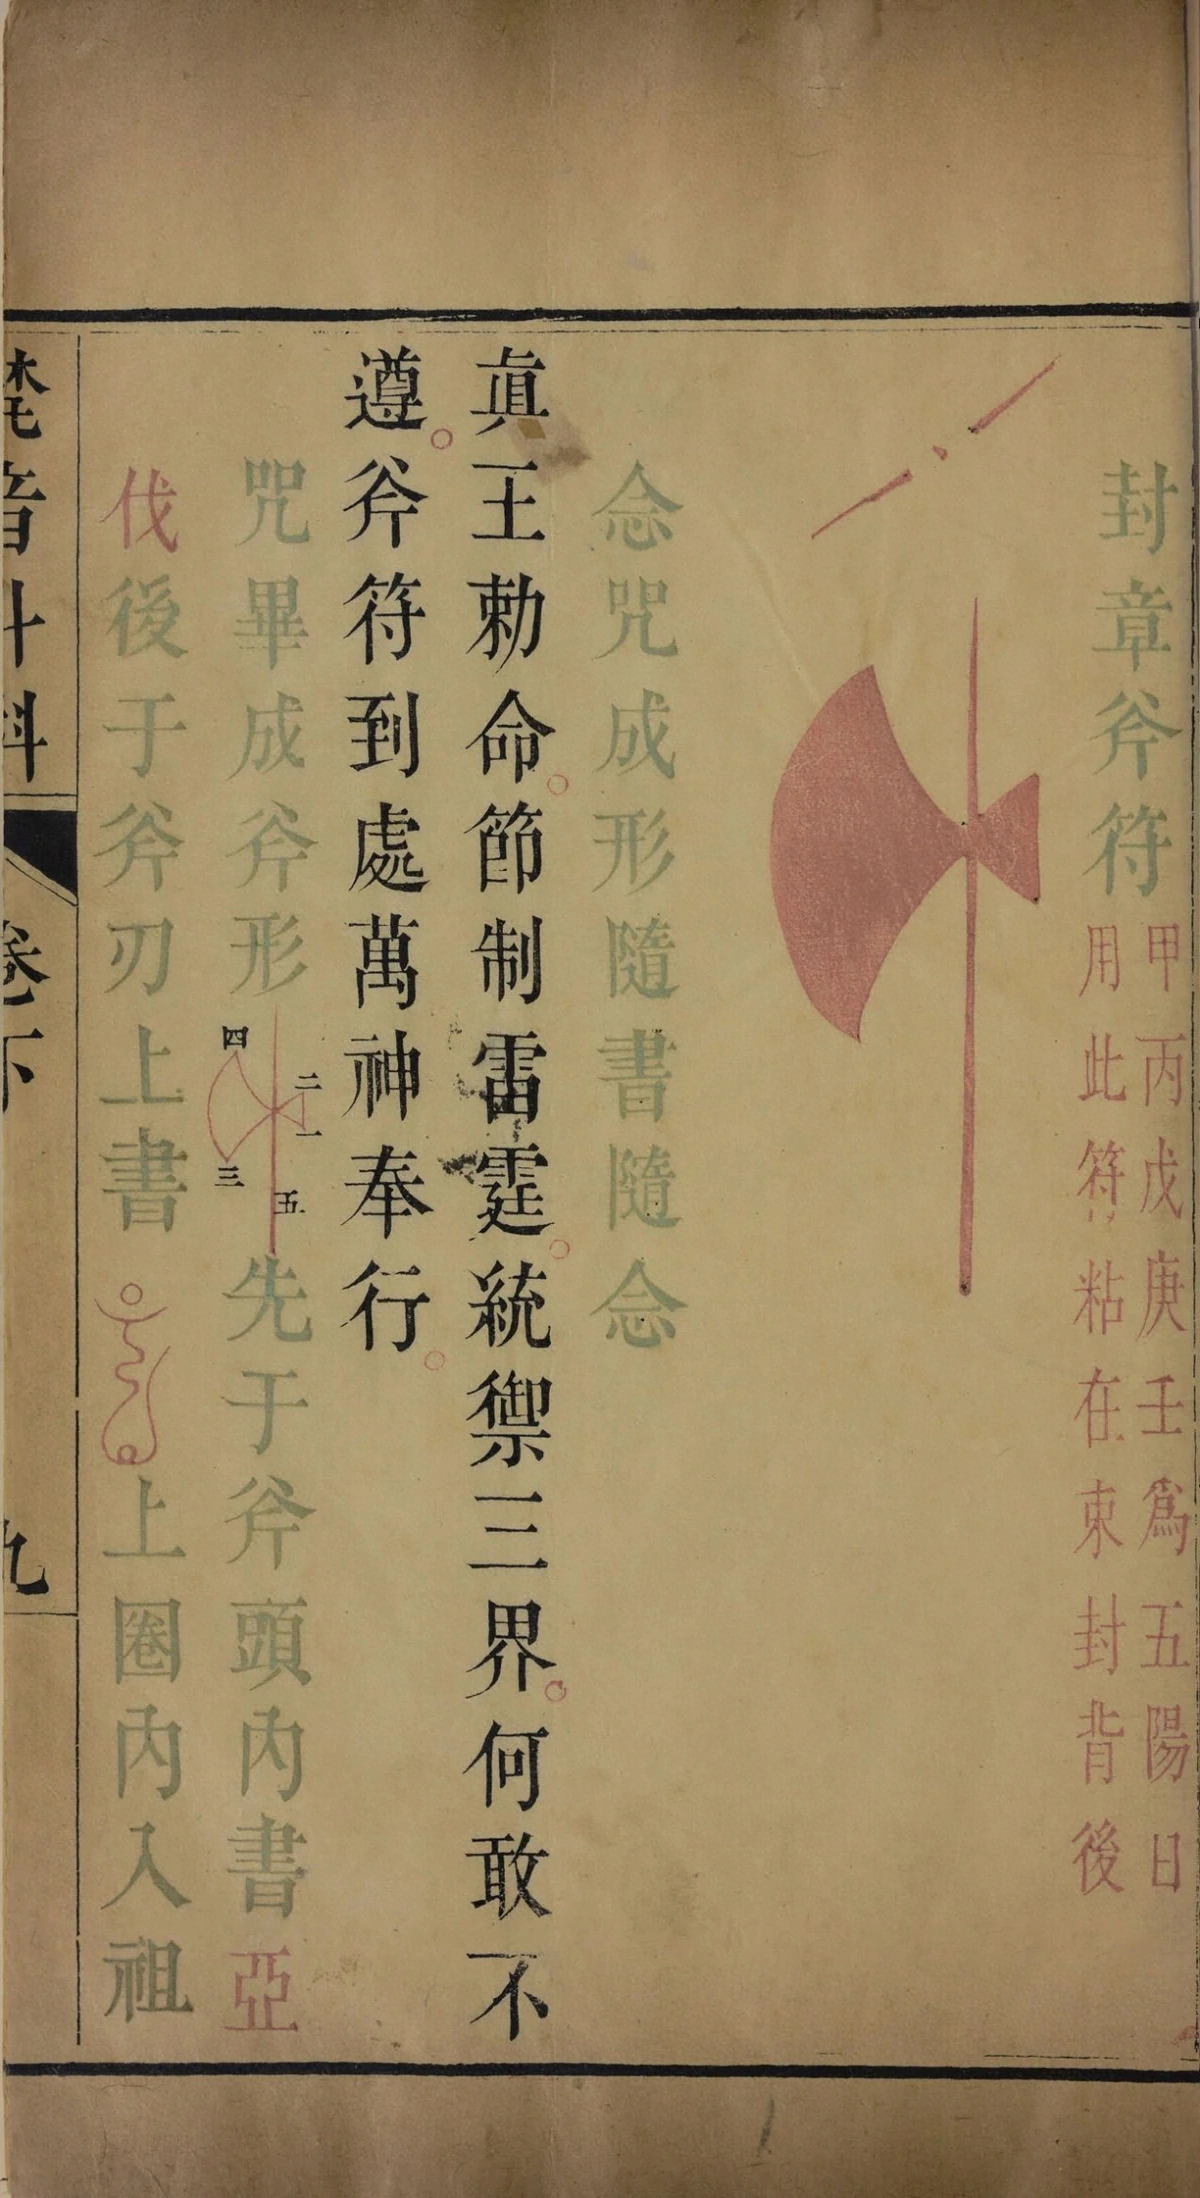 封章斧符
甲丙戊庚壬爲五陽日
用此符粘在束封背後
念咒成形隨書隨念
眞王勅命節制雷霆統禦三界何敢不
遵斧符到處萬神奉行
咒畢成斧形
二
一
四
三
五
先于斧頭內書亞
伐後于斧刃上書
上圈內入祖
梵音斗科
卷下
九